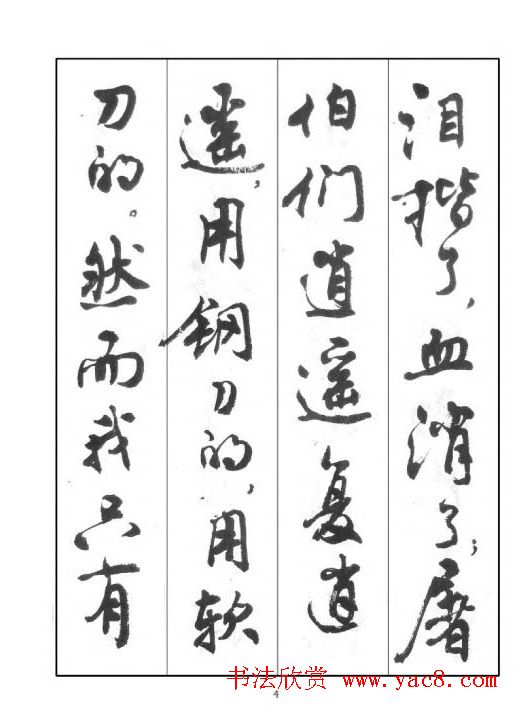 泪揩了，血消了；屠
伯们逍遥复逍
遥，用钢刀的，用软
刀的。然而我只有
4
书法欣赏 www.yac8.com